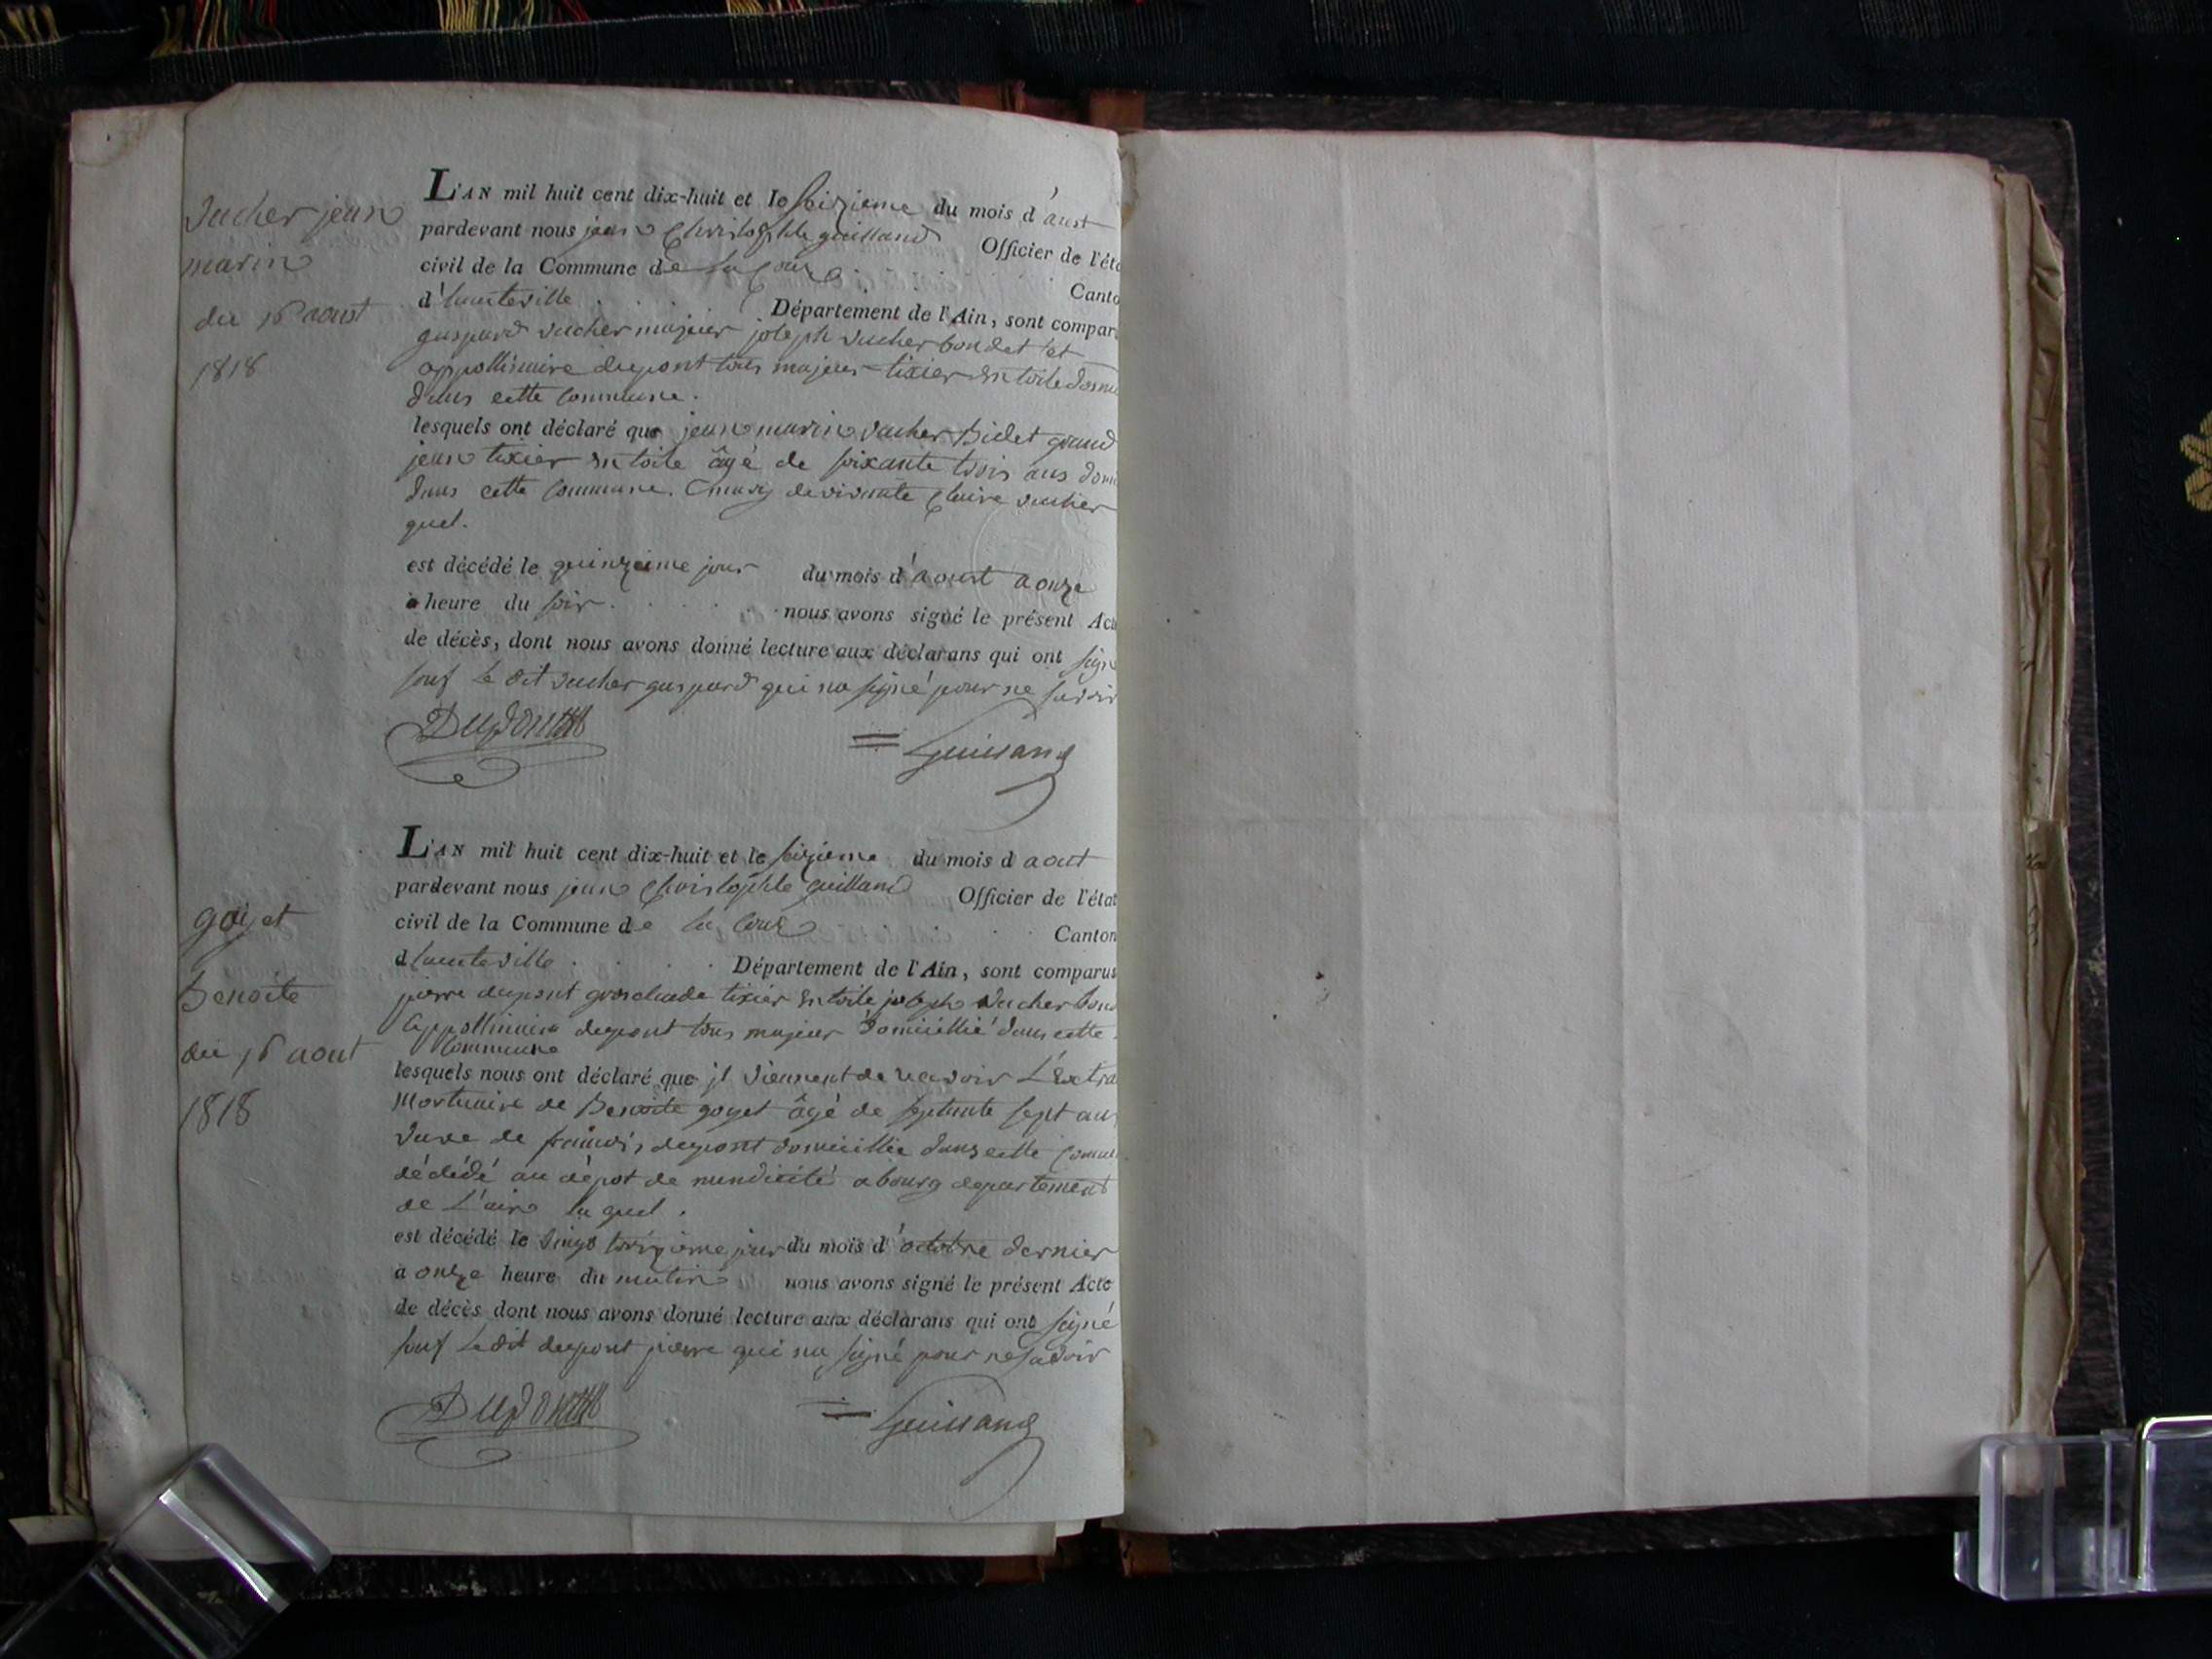 Vucher jean
marin
du 16 aoust
1818
L'AN mil huit cent dix-huit et le seizieme du mois d'aust
pardevant nous jean Christophle guilland Officier de l'éta
civil de la Commune de la Coux Canto
d'hauteville Département de l'Ain, sont compar
gaspard vucher majeur joseph vucher bondet et
appollinaire dupont tous majeur tixier en toile domi
dans cette Commune.
lesquels ont déclaré que jean marin vucher Bidet grand
jean tixier en toile âgé de soixante trois ans domi
dans cette Commune. Claire vucher
quel.
est décédé le quinzeime jour du mois d'aoust a onze
a heure du soir. nous avons signé le présent Act
de décès, dont nous avons donné lecture aux déclarans qui ont sign
souf le dit vucher gaspard qui na signé pour ne savoir
Dupont
Guilland
goyet
Benoite
du 16 aout
1818
L'AN mil huit cent dix-huit et le seizieme du mois d aout
pardevant nous jean Christophle guilland Officier de l'état
civil de la Commune de la Coux Canton
d hauteville Département de l'Ain, sont comparus
pierre dupont grosclaude tixier en toile joseph Vucher bond
appollinaire dupont tous majeur domicillié dans cette
Commune
lesquels nous ont déclaré que jl viennent de recevoir L'Extra
Mortuaire de Benoite goyet âgé de septante sept an
vuve de francois dupont domicilliée dans cette Comun
dédédé au dépot de mendicité a bourg departement
de L'ain la quel.
est décédé le vingt troizieme jour du mois d'octobre dernier
a onze heure du matin nous avons signé le présent Acte
de décès dont nous avons donné lecture aux déclarans qui ont signé
souf le dit dupont pierre qui na signé pour ne savoir
Dupont
Guilland